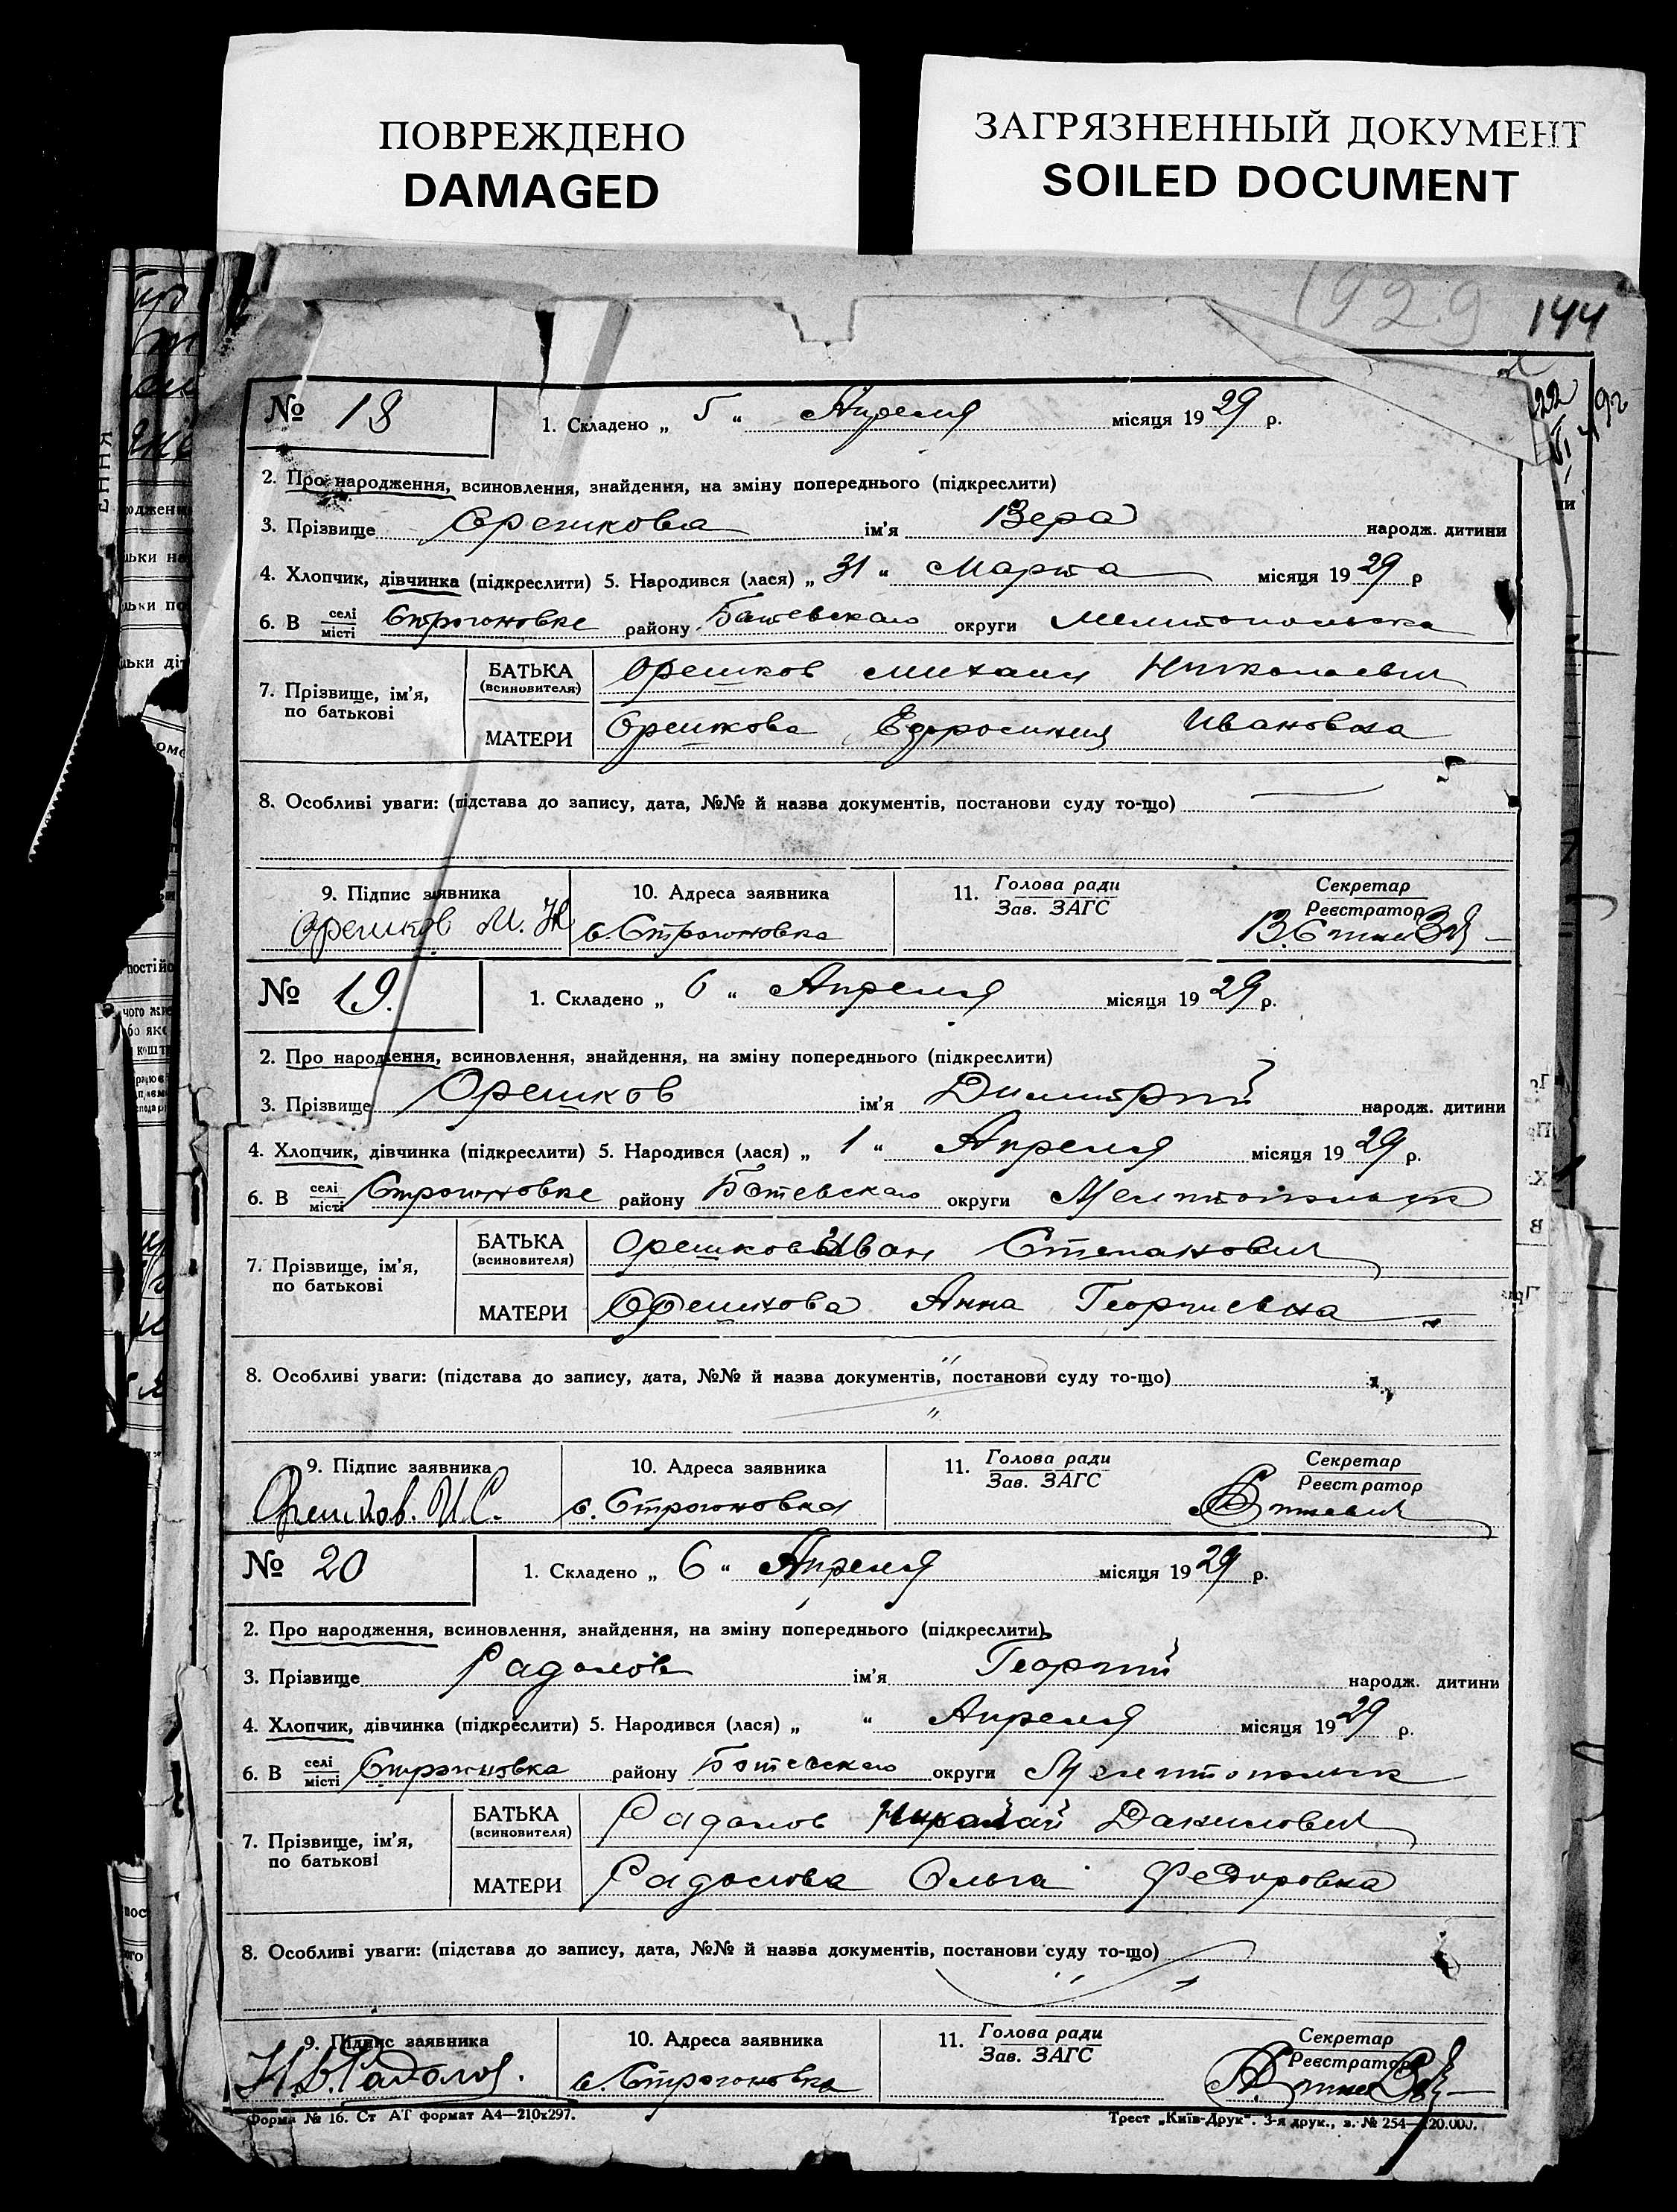 ПОВРЕЖДЕНО
DAMAGED
ЗАГРЯЗНЕННЫЙ ДОКУМЕНТ
SOILED DOCUMENT
1929 144
№ 18 1. Складено „ 5 “ Апреля місяця 1929 р.
2. Про народження, всиновлення, знайдення, на зміну попереднього (підкреслити)
3. Прізвище Орешкова ім'я Вера народж. дитини
4. Хлопчик, дівчинка (підкреслити) 5. Народився (лася) „ 31 “ Марта місяця 1929 р
6. В селі місті Строгоновке району Ботевскаго округи Мелитопольска
7. Прізвище, ім'я, по батькові
БАТЬКА (всиновителя) Орешков Михаил Николаевич
МАТЕРИ Орешкова Ефросиния Ивановна
8. Особливі уваги: (підстава до запису, дата, №№ й назва документів, постанови суду то-що)
9. Підпис заявника 10. Адреса заявника 11. Голова ради Зав. ЗАГС Секретар Реєстратор
Орешков М. Н с. Строгоновка
№ 19. 1. Складено „ 6 “ Апреля місяця 1929 р.
2. Про народження, всиновлення, знайдення, на зміну попереднього (підкреслити)
3. Прізвище Орешков ім'я Димитрий народж. дитини
4. Хлопчик, дівчинка (підкреслити) 5. Народився (лася) „ 1 “ Апреля місяця 1929 р.
6. В селі місті Строгоновке району Ботевскаго округи Мелитопольск
7. Прізвище, ім'я, по батькові
БАТЬКА (всиновителя) Орешков Иван Степанович
МАТЕРИ Орешкова Анна Георгиевна
8. Особливі уваги: (підстава до запису, дата, №№ й назва документів, постанови суду то-що)
9. Підпис заявника 10. Адреса заявника 11. Голова ради Зав. ЗАГС Секретар Реєстратор
Орешков. И.С. с. Строгоновка
№ 20 1. Складено „ 6 “ Апреля місяця 1929 р.
2. Про народження, всиновлення, знайдення, на зміну попереднього (підкреслити)
3. Прізвище Радолов ім'я Георгий народж. дитини
4. Хлопчик, дівчинка (підкреслити) 5. Народився (лася) „ “ Апреля місяця 1929 р.
6. В селі місті Строгоновка району Ботевскаго округи Мелитопольск
7. Прізвище, ім'я, по батькові
БАТЬКА (всиновителя) Радолов Николай Данилович
МАТЕРИ Радолова Ольга Федоровна
8. Особливі уваги: (підстава до запису, дата, №№ й назва документів, постанови суду то-що)
9. Підпис заявника 10. Адреса заявника 11. Голова ради Зав. ЗАГС Секретар Реєстратор
Н.Д.Радолов. с. Строгоновка
Форма № 16. Ст АТ формат А4—210х297. Трест „Київ-Друк“. 3-я друк., з. № 254—120.000.